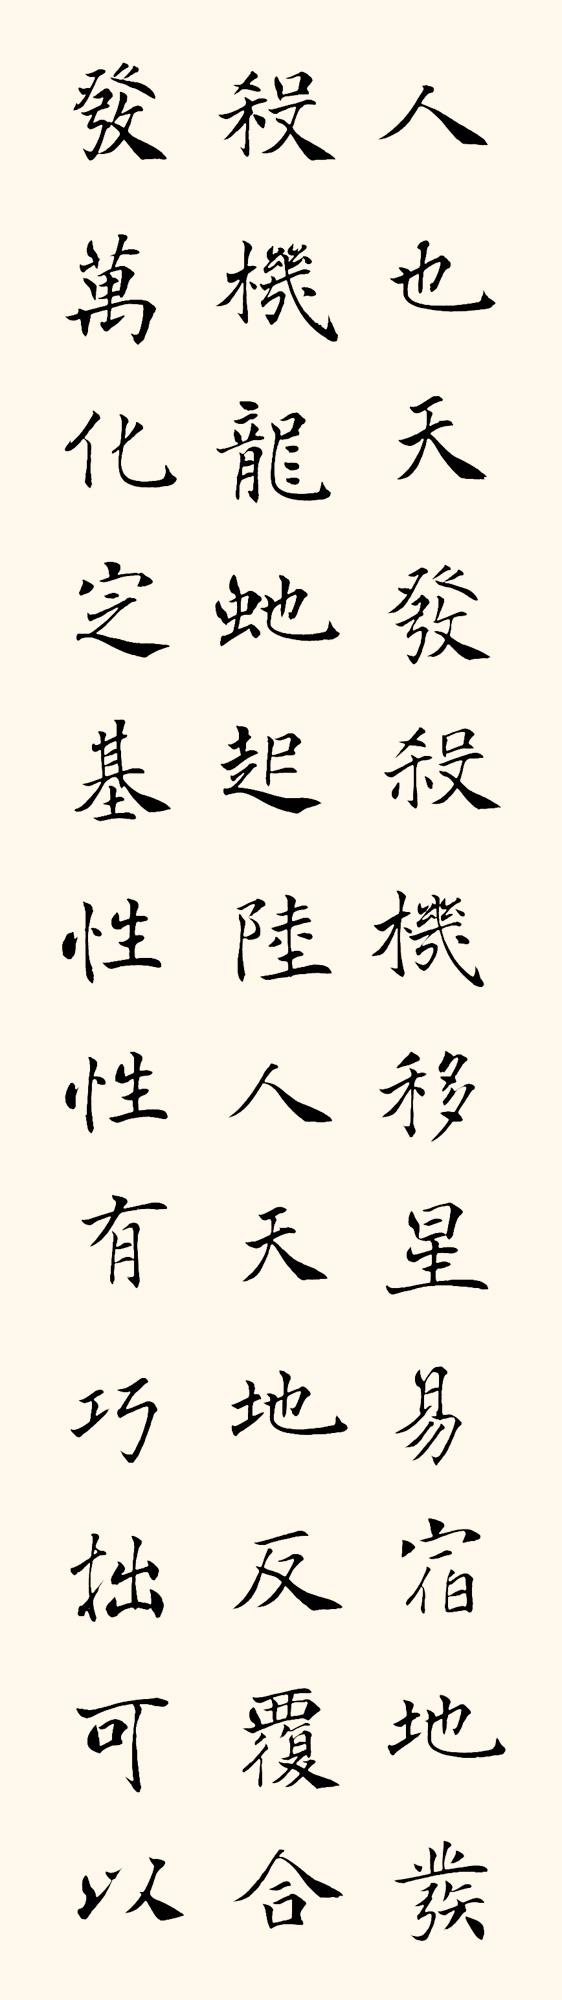 人也天發殺機移星易宿地發
殺機龍虵起陸人天地反覆合
發萬化定基性性有巧拙可以